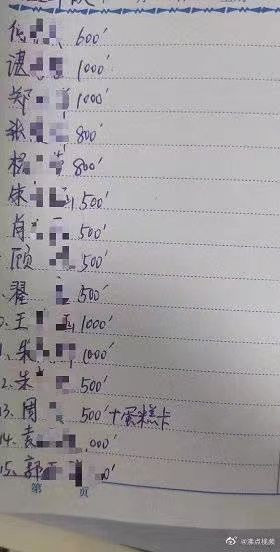 600'
谌 1000'
郑 1000'
张 800'
杨 800'
朱 500'
肖 500'
顾 500'
翟 500'
王 1000'
朱 1000'
2. 朱 500'
13. 周 500'+蛋糕卡
14. 袁 000'
15. 郭 0'
第 页
@沸点视频